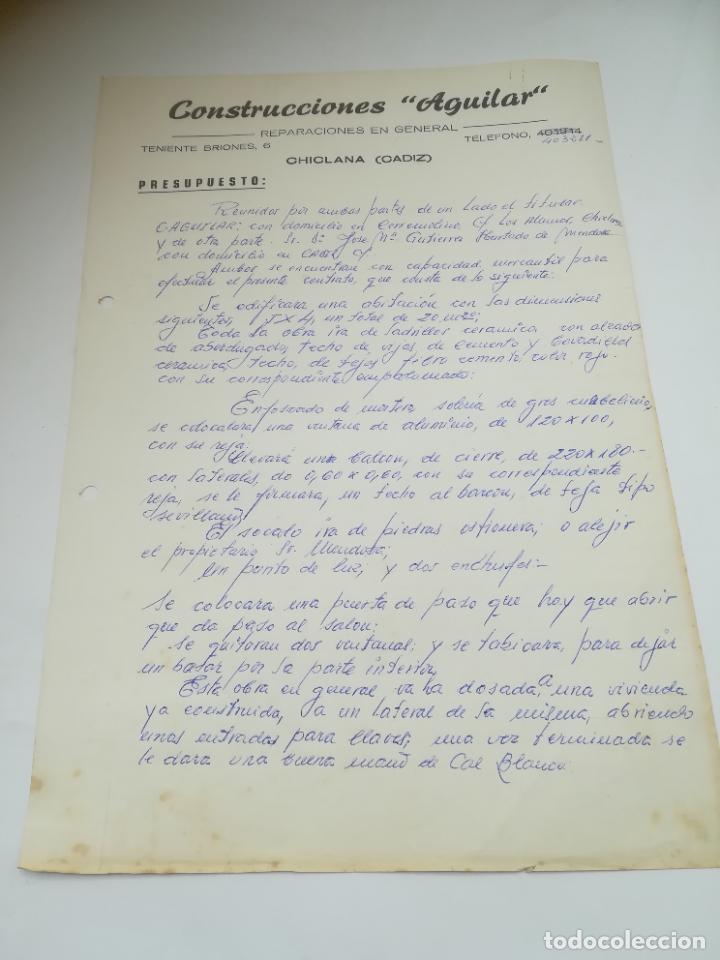 Construcciones "Aguilar"
REPARACIONES EN GENERAL
TENIENTE BRIONES, 6
TELEFONO, 403914
CHICLANA (CADIZ)
PRESUPUESTO:
Reunidos por ambas partes de un Lado el titular
C. AGUILAR; con domicilio en Los Alamos, Chiclana
y de otra parte. Sr. Dº Jose Mª Gutierra Hurtado de Mendosa
con domicilio en CADIZ C/
Ambos se encuentran con capacidad mercantil para
efectuar el presente contrato, que consta de lo siguiente:
Se edificara una abitación con las dimensiones
siguientes, 5 X 4, un total de 20, m2º;
Toda la obra ira de ladrillos ceramica con alzado
de asordugado, techo de vijas, de cemento y bovedillas
ceramica, techo, de tejas fibro cemento, color rojo
con su correspondiente emplatumado:
Enfoscado de mortero soleria de gres
se colocara una ventana de aluminio, de 120 x 100,
con su reja.
Llevará una balcon, de cierre, de 220 x 180.-
con laterales, de 0,60 x 0,60, con su correspondiente
reja, se le firmara, un techo al barcon, de teja tipo
sevillana
El socalo ira de piedras ostionera, o alejir
el propietario Sr. Mendosa;
Un ponto de luz, y dos enchufes:-
Se colocara una puerta de paso que hay que abrir
que da paso al salon;
se quitaran dos ventanal; y se tabicara, para dejar
un basar por la parte interior,
Esta obra en general va ha dosada a una vivienda
ya construida, a un lateral de la misma, abriendo
unas entradas para llaves, una vez terminada se
le dara una buena mano de Cal Blanca
todocoleccion
todocoleccion.net